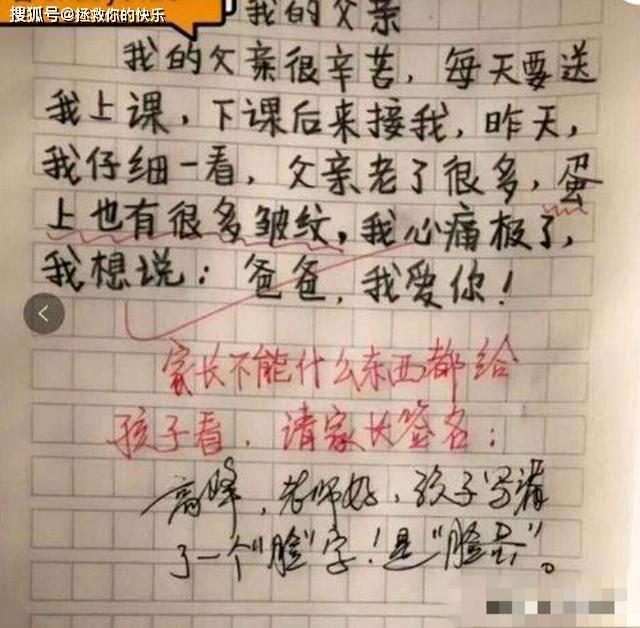 搜狐号@拯救你的快乐
我的父亲
我的父亲很辛苦，每天要送
我上课，下课后来接我，昨天，
我仔细一看，父亲老了很多，蛋
上也有很多皱纹，我心痛极了，
我想说：爸爸，我爱你！
家长不能什么东西都给
孩子看，请家长签名：
高峰，老师好，孩子写漏
了一个“脸”字！是“脸蛋”。